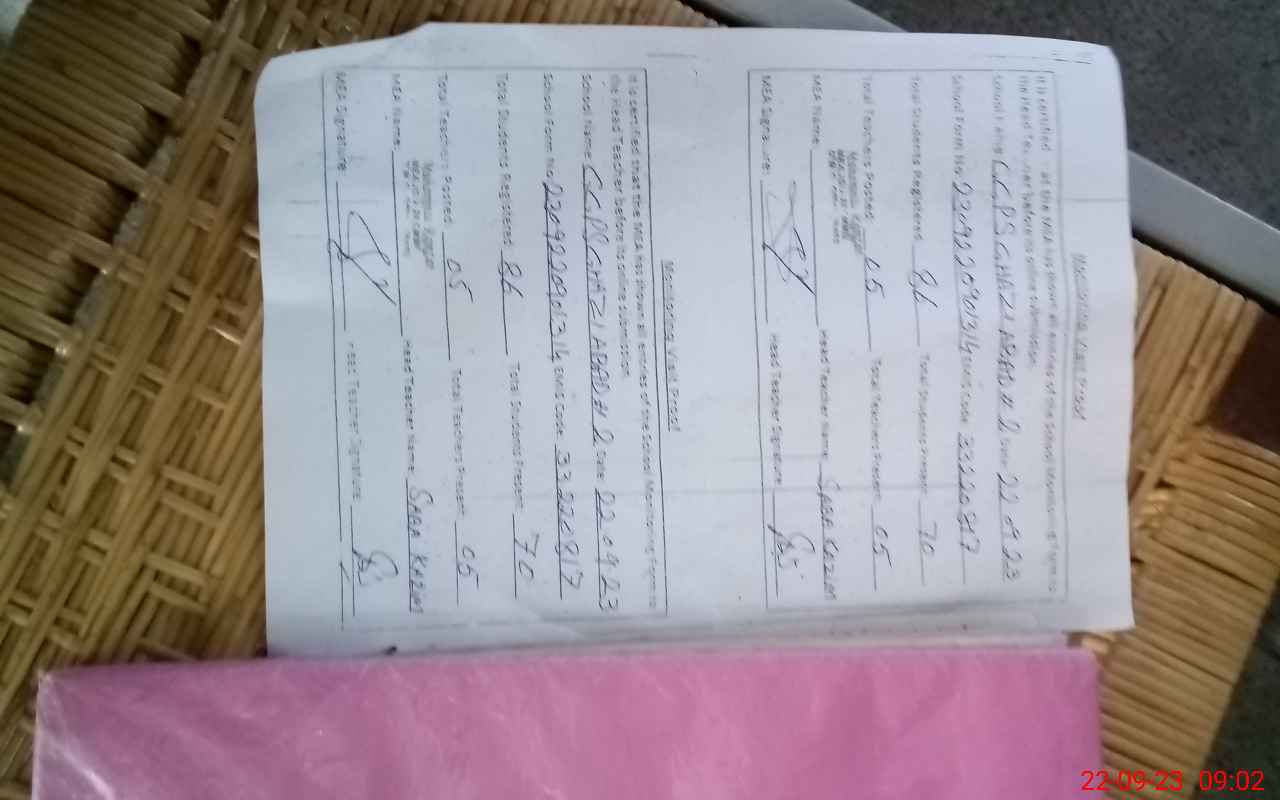 Monitoring Visit Proof
It is certified that the MEA has shown all entries of the School Monitoring Form to
the Head Teacher before its online submission.
School Name CCPS GHAZIABAD # 2 Date 22 09 23
School Form No EMIS Code 33220817
Total Students Registered 86 Total Students Present 70
Total Teachers Posted 05 Total Teachers Present 05
MEA Name: Head Teacher Name SABA
MEA Signature: Head Teacher Signature
Monitoring Visit Proof
It is certified that the MEA has shown all entries of the School Monitoring Form to
the Head Teacher before its online submission.
School Name CCPS GHAZIABAD # 2 Date 22 09 23
School Form No EMIS Code 33220817
Total Students Registered 86 Total Students Present 70
Total Teachers Posted 05 Total Teachers Present 05
MEA Name: Head Teacher Name SABA
MEA Signature Head Teacher Signature
22-09-23 09:02